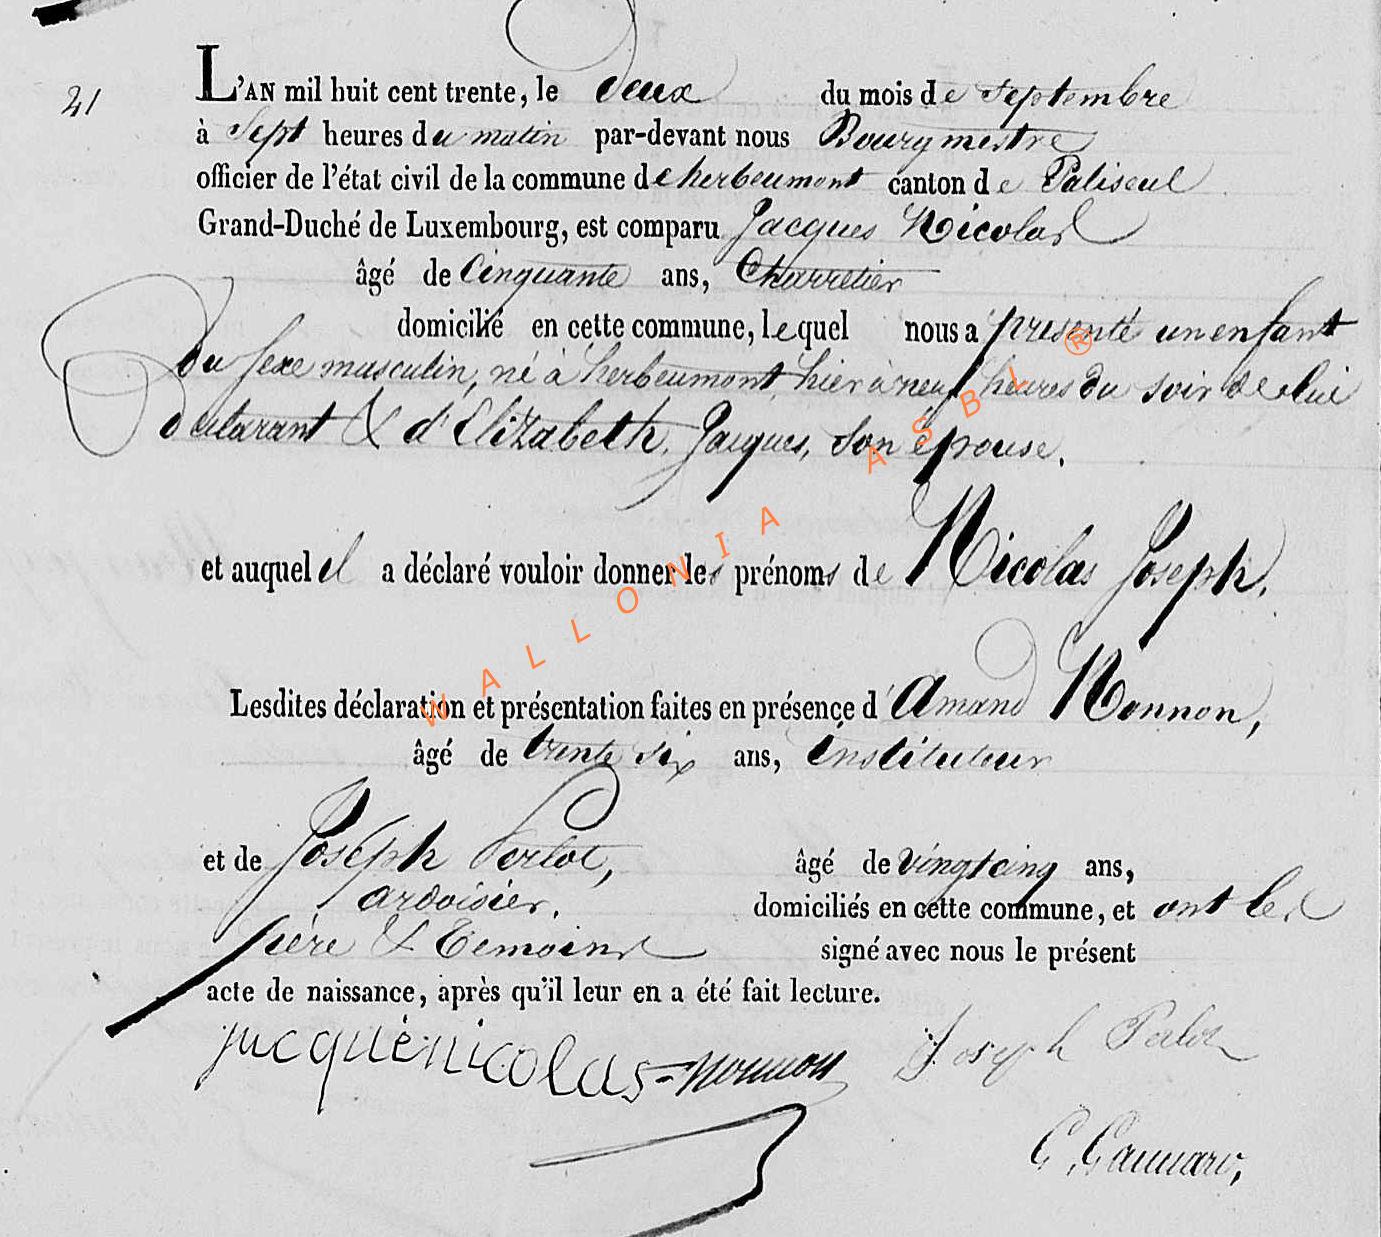 21
L'AN mil huit cent trente, le deux du mois de septembre
à sept heures du matin par-devant nous Bourgmestre
officier de l'état civil de la commune de herbeumont canton de Paliseul
Grand-Duché de Luxembourg, est comparu Jacques Nicolas
âgé de Cinquante ans, Charretier
domicilié en cette commune, lequel nous a présenté un enfant
du sexe masculin, né à herbeumont, hier à neuf heures du soir de lui
déclarant & d'Elizabeth Jacques, son épouse.
et auquel il a déclaré vouloir donner les prénoms de Nicolas Joseph.
Lesdites déclaration et présentation faites en présence d'Amand Nonnon,
âgé de trente six ans, instituteur
et de Joseph Perlot, âgé de vingt cinq ans,
ardoisier. domiciliés en cette commune, et ont les
père & témoins signé avec nous le présent
acte de naissance, après qu'il leur en a été fait lecture.
jacquenicolas = nonnon Joseph Palot
WALLONIA ASBL ®